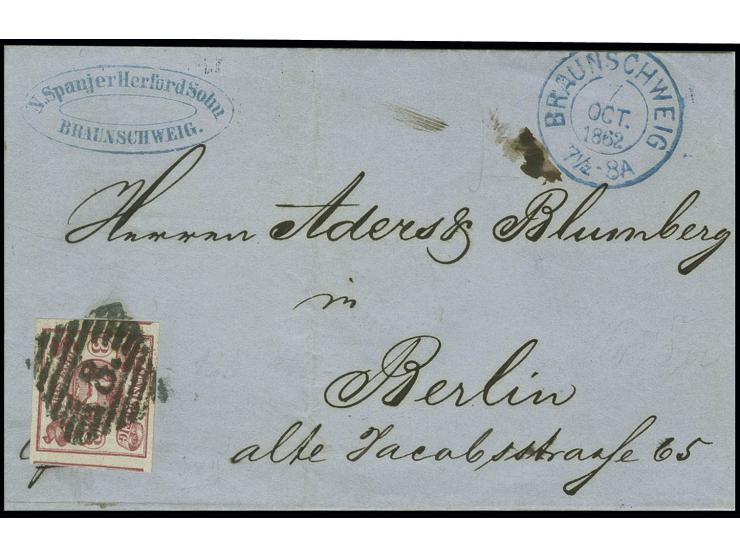 N. Spanjer Herford Sohn
BRAUNSCHWEIG.
BRAUNSCHWEIG
7
OCT.
1862
7½-8A
Herren Aders & Blumberg
in
Berlin
alte Jacobsstraaße 65
8
3